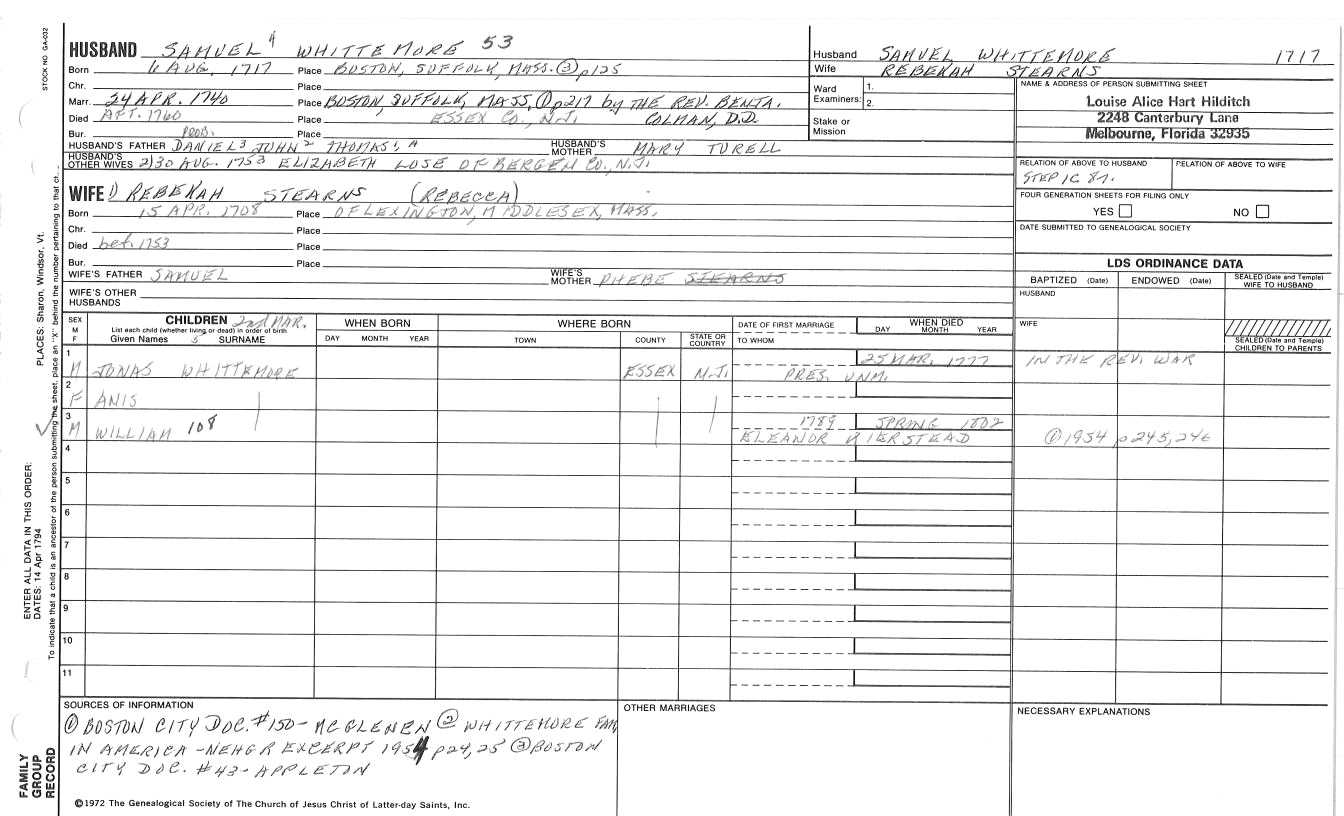 STOCK NO GA-032
HUSBAND SAMUEL 4 WHITTEMORE 53
Born 6 AUG. 1717 Place BOSTON, SUFFOLK, MASS. ③ p125
Chr. Place
Marr. 24 APR. 1740 Place BOSTON, SUFFOLK, MASS, ① p217 by THE REV. BENJA.
Died AFT. 1760 Place ESSEX CO., N.J. COLMAN, D.D.
Bur. PROB. Place
HUSBAND'S FATHER DANIEL 3 JOHN 2 THOMAS 1, A HUSBAND'S MOTHER MARY TURELL
HUSBAND'S OTHER WIVES 2) 30 AUG. 1753 ELIZABETH LOSE OF BERGEN CO., N.J.
WIFE 1) REBEKAH STEARNS (REBECCA)
Born 15 APR. 1708 Place OF LEXINGTON, MIDDLESEX, MASS.
Chr. Place
Died bef. 1753 Place
Bur. Place
WIFE'S FATHER SAMUEL WIFE'S MOTHER PHEBE STEARNS
WIFE'S OTHER HUSBANDS
Husband SAMUEL WHITTEMORE 1717
Wife REBEKAH STEARNS
Ward 1.
Examiners: 2.
Stake or Mission
NAME & ADDRESS OF PERSON SUBMITTING SHEET
Louise Alice Hart Hilditch
2248 Canterbury Lane
Melbourne, Florida 32935
RELATION OF ABOVE TO HUSBAND RELATION OF ABOVE TO WIFE
STEP 1C 8R.
FOUR GENERATION SHEETS FOR FILING ONLY
YES NO
DATE SUBMITTED TO GENEALOGICAL SOCIETY
LDS ORDINANCE DATA
BAPTIZED (Date) ENDOWED (Date) SEALED (Date and Temple) WIFE TO HUSBAND
HUSBAND
WIFE
SEALED (Date and Temple) CHILDREN TO PARENTS
SEX M F CHILDREN 2nd MAR. WHEN BORN WHERE BORN DATE OF FIRST MARRIAGE WHEN DIED
List each child (whether living or dead) in order of birth
Given Names 5 SURNAME DAY MONTH YEAR TOWN COUNTY STATE OR COUNTRY TO WHOM DAY MONTH YEAR
1 25 MAR. 1777 IN THE REV. WAR
M JONAS WHITTEMORE ESSEX N.J. PRES. UNM.
2
F ANIS
3 1789 SPRING 1802
M WILLIAM 108 ELEANOR KIERSTEAD ① 1954 p245, 246
4
5
6
7
8
9
10
11
SOURCES OF INFORMATION
① BOSTON CITY DOC. #150 - MCGLENEN ② WHITTEMORE FAM.
IN AMERICA - NEHGR EXCERPT 1954 p24, 25 ③ BOSTON
CITY DOC. #43 - APPLETON
OTHER MARRIAGES
NECESSARY EXPLANATIONS
©1972 The Genealogical Society of The Church of Jesus Christ of Latter-day Saints, Inc.
FAMILY GROUP RECORD
ENTER ALL DATA IN THIS ORDER:
DATES: 14 Apr 1794
PLACES: Sharon, Windsor, Vt.
To indicate that a child is an ancestor of the person submitting the sheet, place an "X" behind the number pertaining to that ch